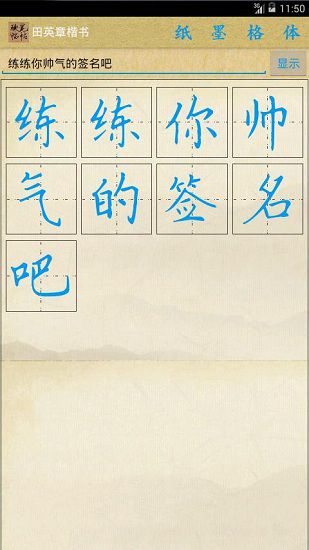 3G 11:50
硬笔
临帖
田英章楷书 纸 墨 格 体
练练你帅气的签名吧 显示
练 练 你 帅
气 的 签 名
吧